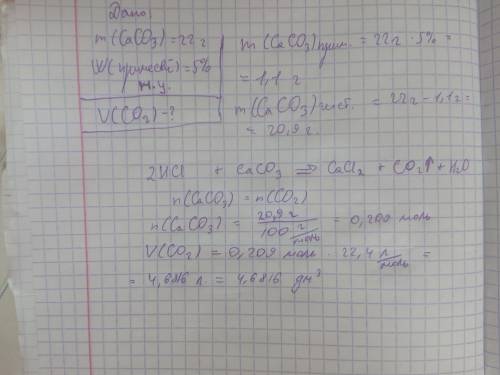 Дано:
m(CaCO₃)=22г
W(примесей)=5%
н.у.
V(CO₂)-?
m(CaCO₃)прим. = 22г · 5% =
= 1,1 г
m(CaCO₃)чист. = 22г - 1,1г =
= 20,9 г.
2HCl + CaCO₃ ⇒ CaCl₂ + CO₂↑ + H₂O
n(CaCO₃) = n(CO₂)
n(CaCO₃) = 20,9 г / 100 г/моль = 0,209 моль
V(CO₂) = 0,209 моль · 22,4 л/моль =
= 4,6816 л. = 4,6816 дм³